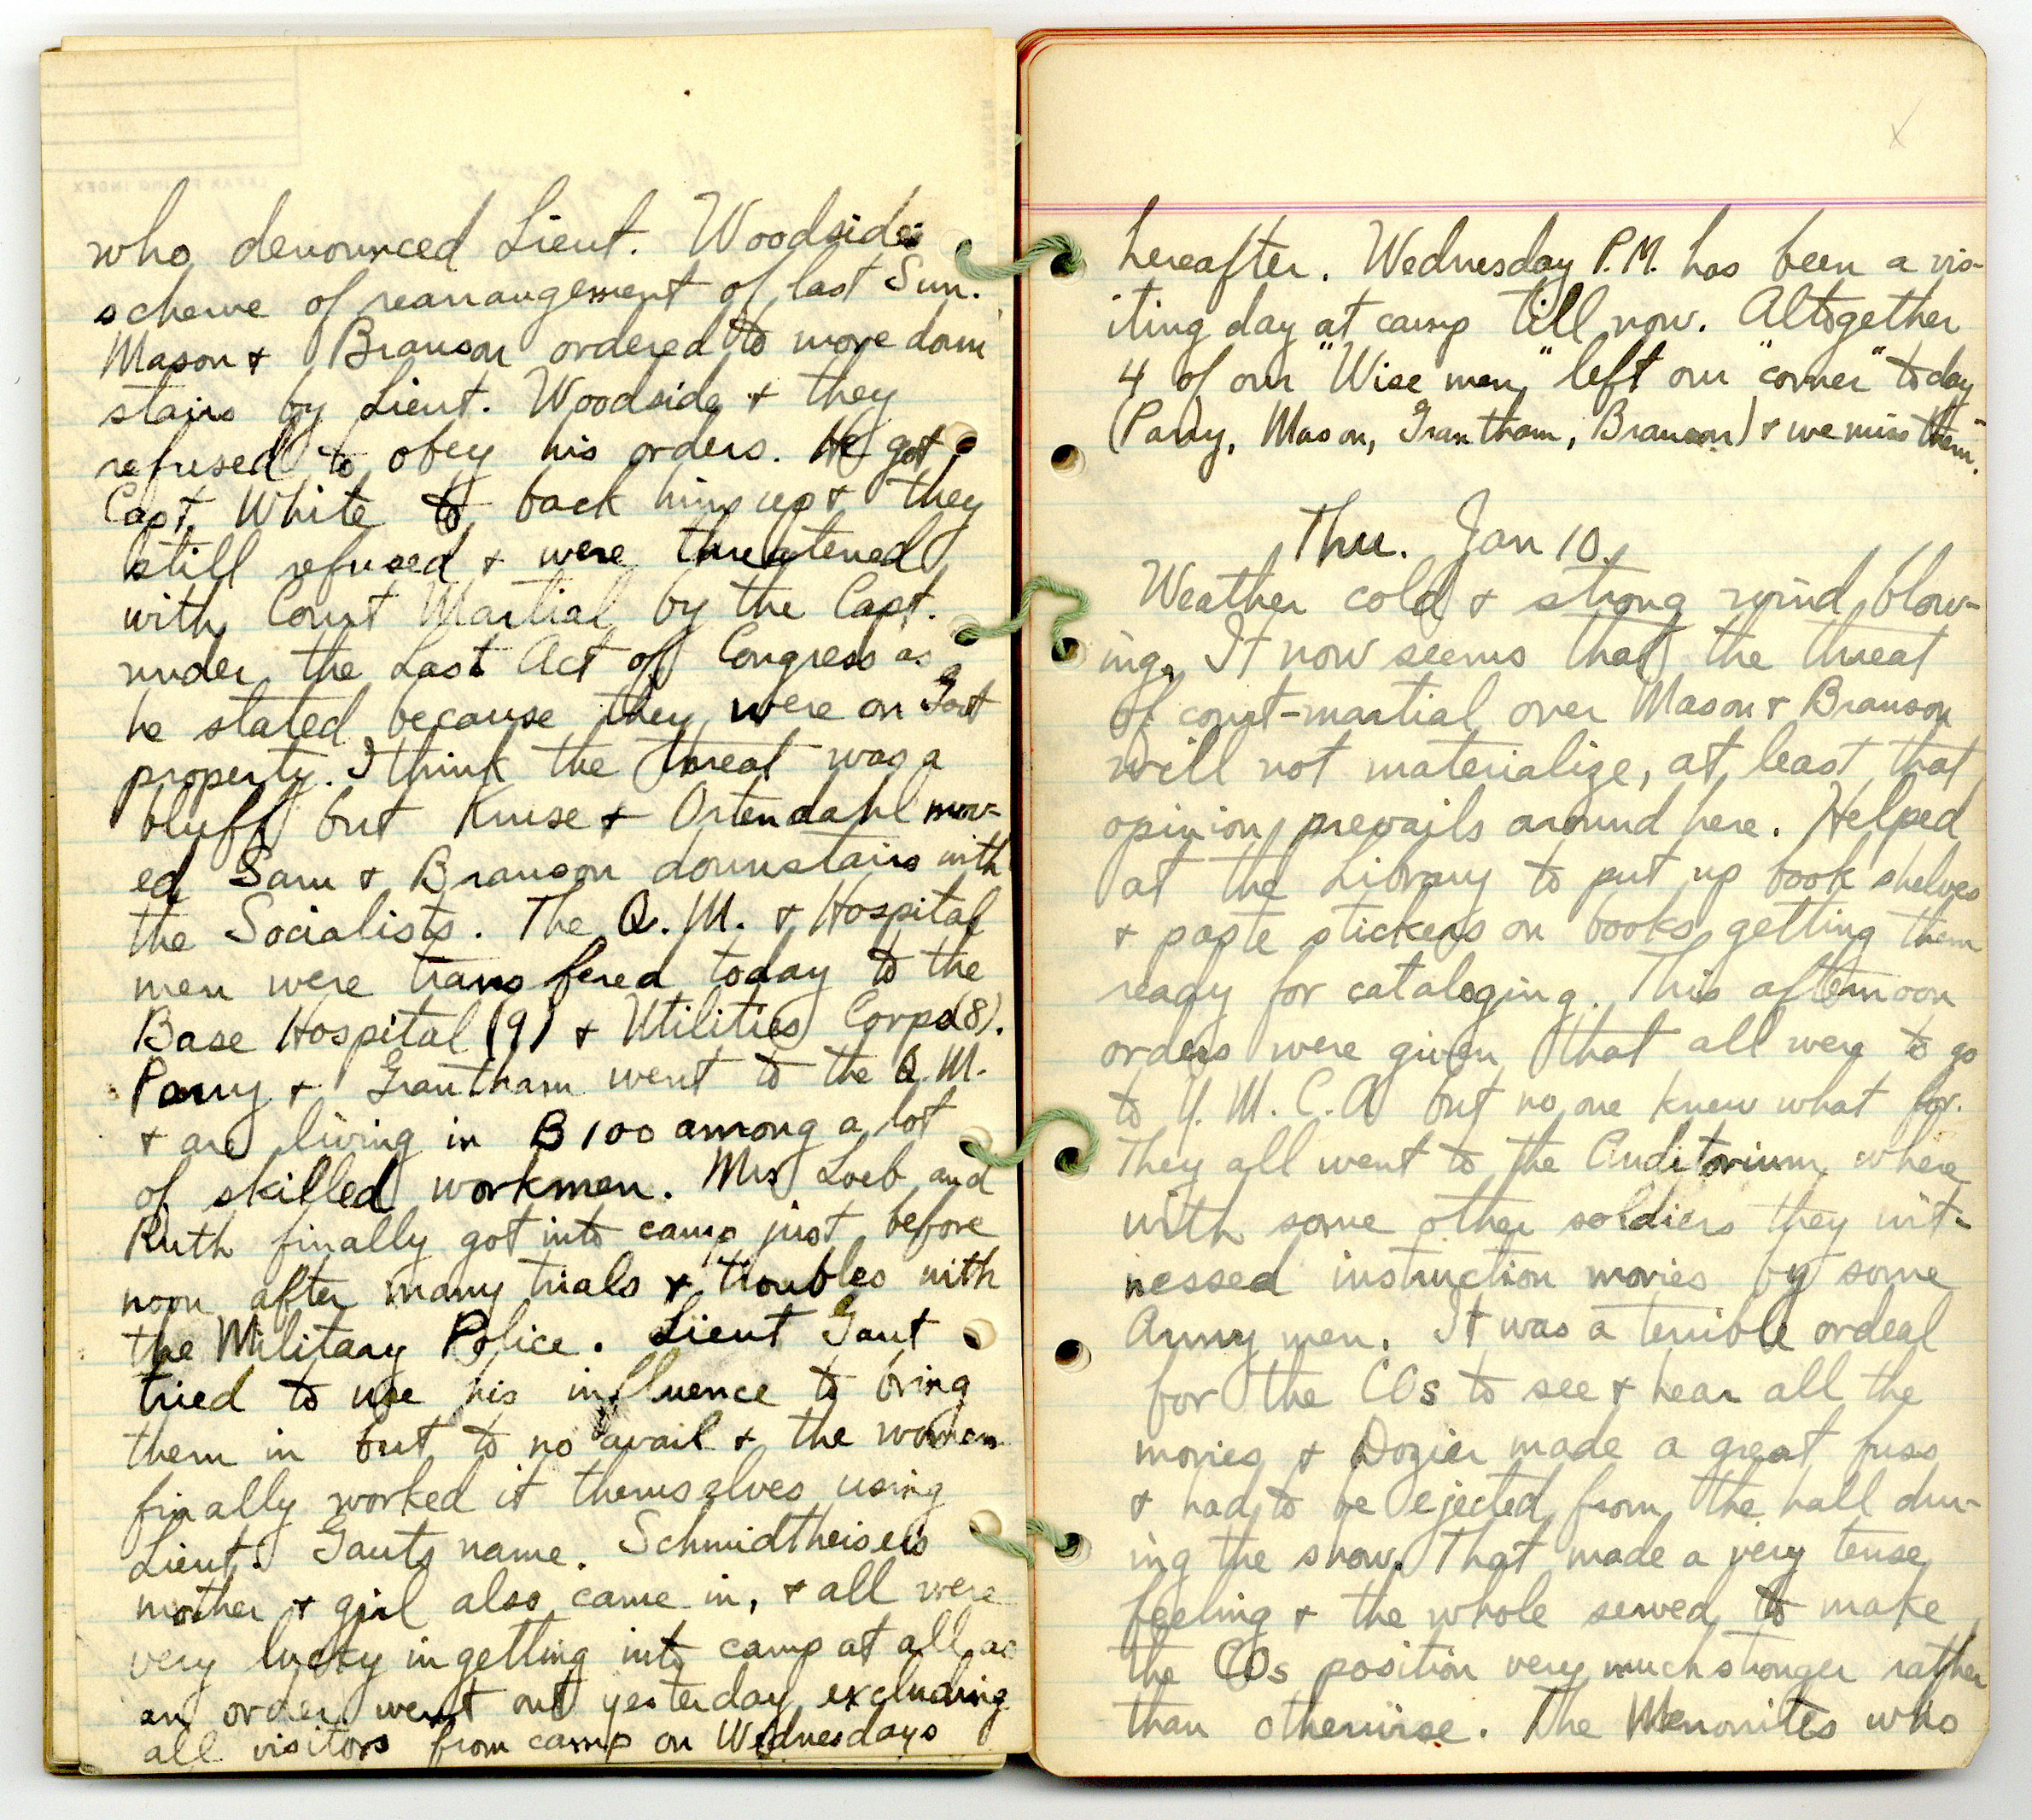 who denounced Lieut. Woodsides
scheme of rearrangement of last Sun.
Mason & Branson ordered to move down
stairs by Lieut. Woodside & they
refused to obey his orders. He got
Capt. White to back him up & they
still refused & were threatened
with Court Martial by the Capt.
under the Last Act of Congress as
he stated because they were on Govt
property. I think the threat was a
bluff but Kruse & Ostendahl mov-
ed Sam & Branson downstairs with
the Socialists. The Q.M. & Hospital
men were transfered today to the
Base Hospital (9) & Utilities Corps (8).
Parry & Grantham went to the Q.M.
& are living in B100 among a lot
of skilled workmen. Mrs Loeb and
Ruth finally got into camp just before
noon after many trials & troubles with
the Military Police. Lieut Gaut
tried to use his influence to bring
them in but to no avail & the women
finally worked it themselves using
Lieut. Gauts name. Schmidtheisers
mother & girl also came in, & all were
very lucky in getting into camp at all as
an order went out yesterday excluding
all visitors from camp on Wednesdays
hereafter. Wednesday P.M. has been a vis-
iting day at camp till now. Altogether
4 of our "Wise men" left our "corner" today
(Parry, Mason, Grantham, Branson) & we miss them.
Thu. Jan 10.
Weather cold & strong wind blow-
ing. It now seems that the threat
of court-martial over Mason & Branson
will not materialize, at least that
opinion prevails around here. Helped
at the Library to put up book shelves
& paste stickers on books getting them
ready for cataloging. This afternoon
orders were given that all were to go
to Y.M.C.A but no one knew what for.
They all went to the Auditorium where
with some other soldiers they wit-
nessed instruction movies by some
Army men. It was a terrible ordeal
for the COs to see & hear all the
movies & Dozier made a great fuss
& had to be ejected from the hall dur-
ing the show. That made a very tense
feeling & the whole served to make
the COs position very much stronger rather
than otherwise. The Menonites who